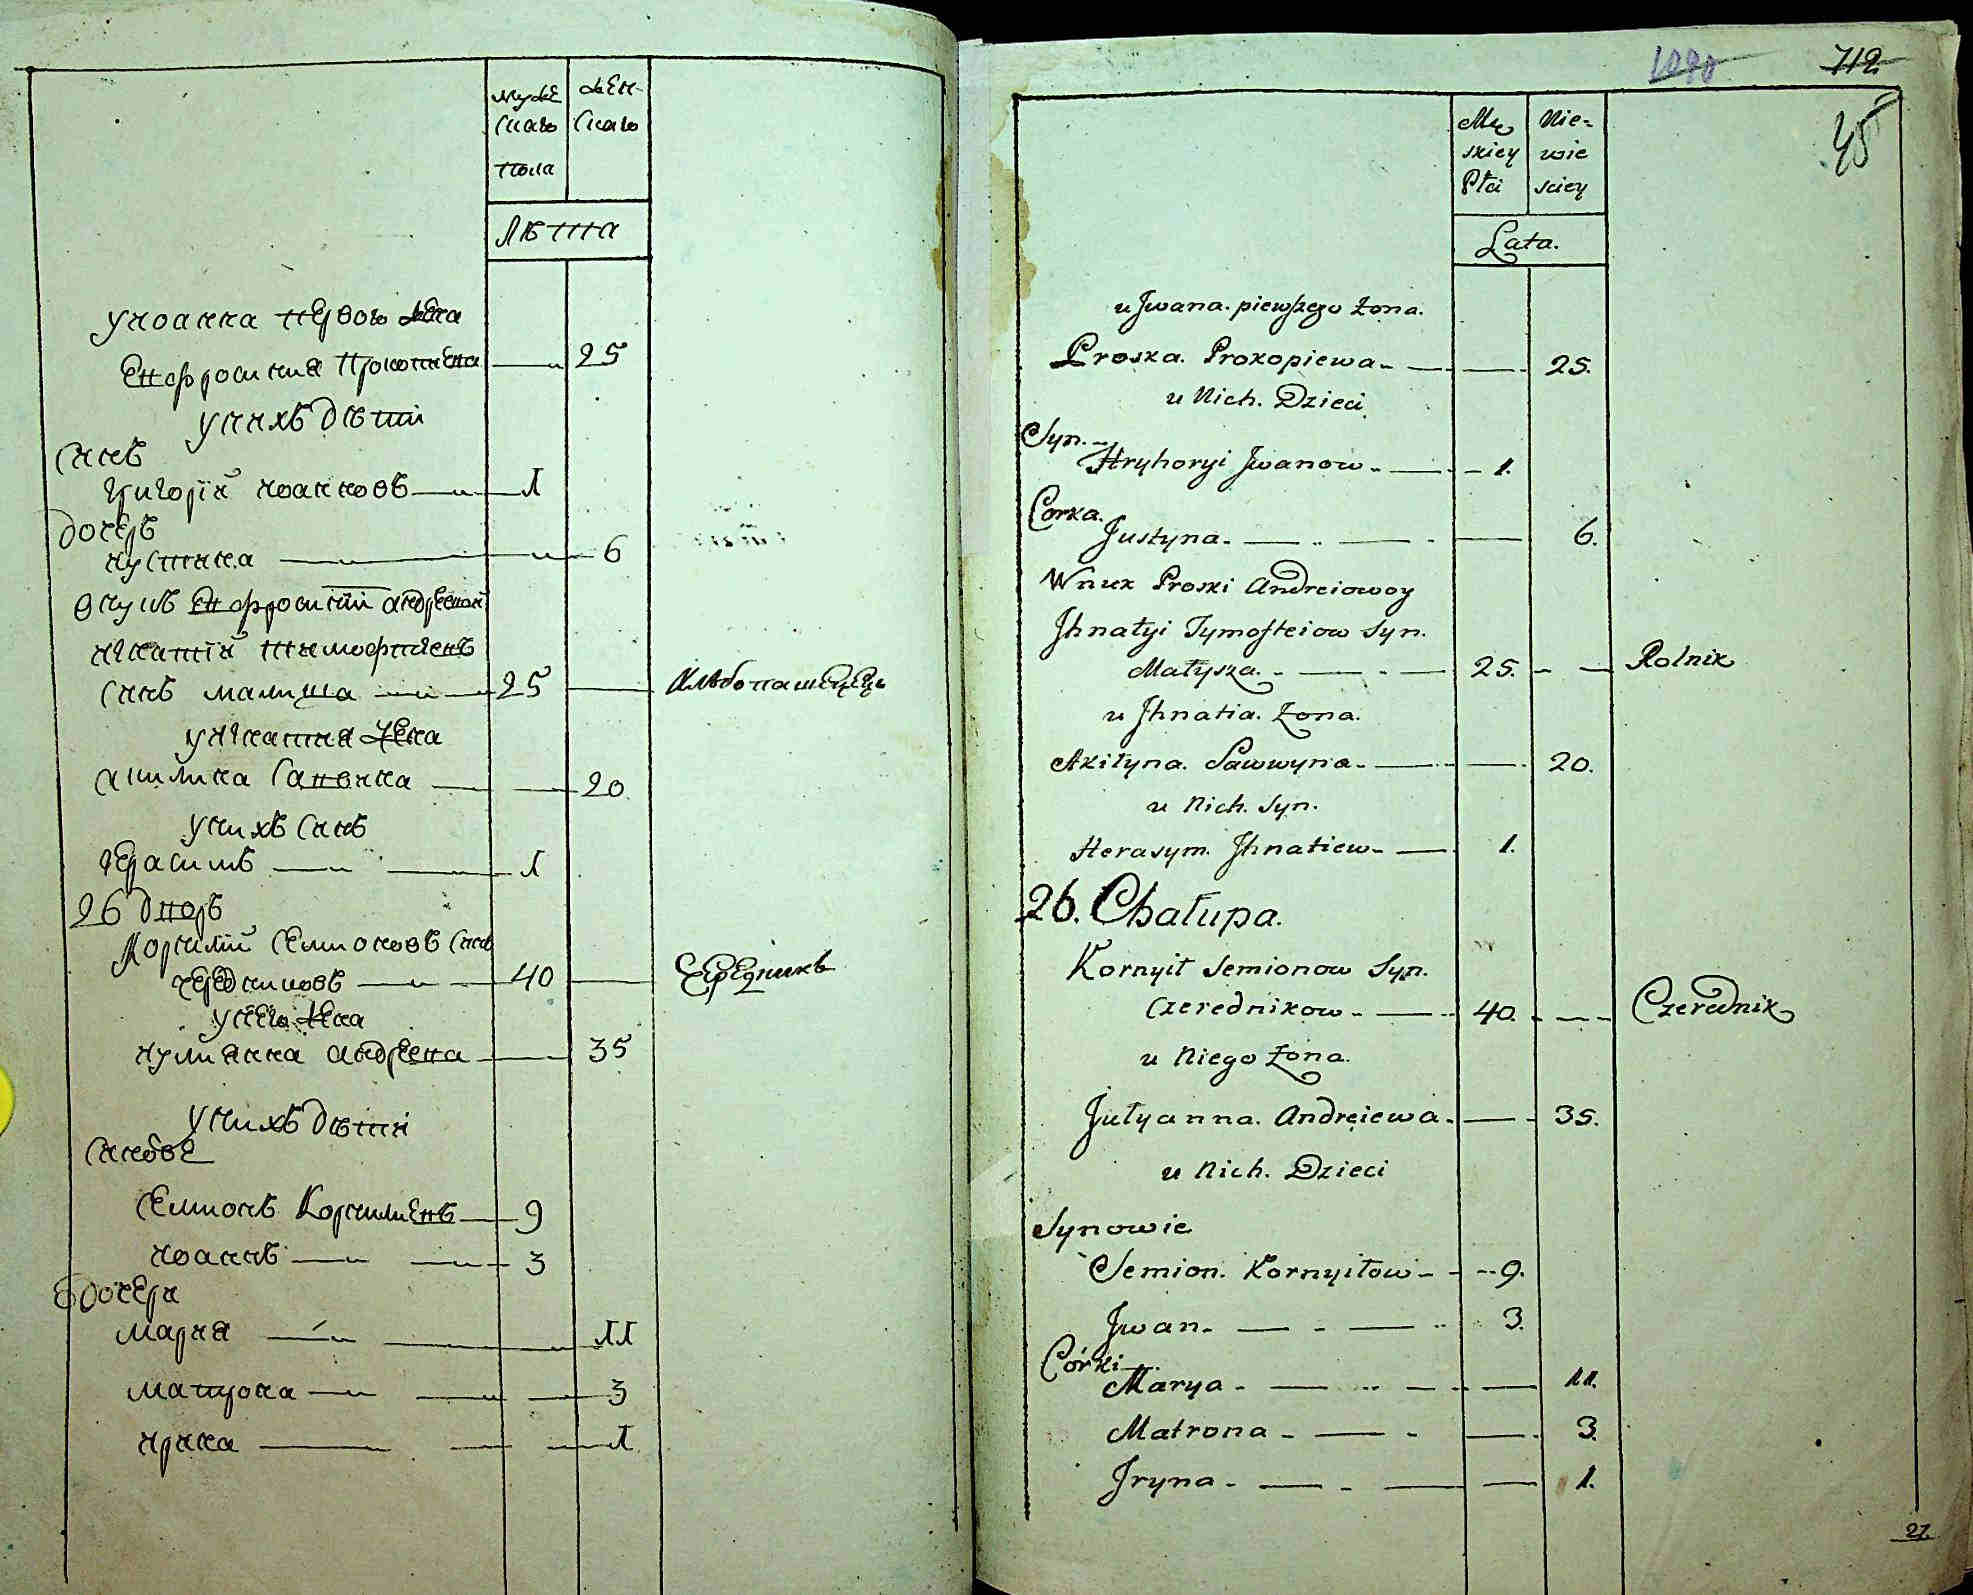 муже
скаго
пола
жен-
скаго
Лѣта
у Иоанна первого жена
Евфросиния Прокопиева 25
у них дѣти
Синъ
Григорій Иоанновъ 1
дочерь
Иустина 6
внукъ Евфросиніи андреевой
Игнатій Тимофтиевъ
синъ малиша 25 хлѣбопашецець
у Игнатия жена
акилина Савина 20
у нихъ синъ
Герасимъ 1
26 дворъ
Корнилій Семионовъ синъ
чередниковъ 40 Чередникъ
у него жена
Иулианна андреева 35
у нихъ дѣти
Синове
Семионъ Корнилиевъ 9
Иоаннъ 3
дочери
Мария 11
Матрона 3
Ирина 1
1090
712
45
Mę
skiey
Płci
Nie-
wie
sciey
Lata.
u Jwana. piewszego Żona.
Proska. Prokopiewa. 25.
u Nich. Dzieci
Syn.
Hryhoryi Jwanow. 1.
Corka.
Justyna. 6.
Wnuk Proski Andreiowoy
Jhnatyi Tymofteiow Syn.
Małysza. 25. Rolnik
u Jhnatia. Żona.
Akiłyna. Sawwyna. 20.
u Nich. Syn.
Herasym. Jhnatiew. 1.
26. Chałupa.
Kornyił Semionow Syn.
Czerednikow. 40. Czerednik
u Niego Żona.
Jułyanna. Andreiewa. 35.
u Nich. Dzieci
Synowie
Semion. Kornyiłow 9.
Jwan. 3.
Córki
Marya 11.
Matrona 3.
Jryna 1.
27.